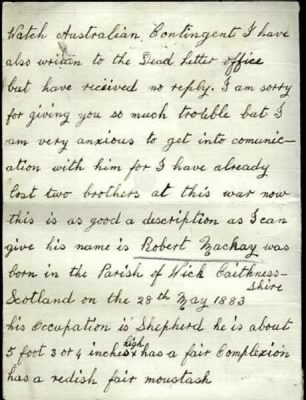 Watch Australian Contingent I have
also written to the Dead Letter office
but have received no reply. I am sorry
for giving you so much trouble but I
am very anxious to get into comunic-
ation with him for I have already
lost two brothers at this war now
this is as good a description as I can
give his name is Robert Mackay was
born in the Parish of Wick Caithness-
shire
Scotland on the 28th May 1883
his Occupation is Shepherd he is about
high
5 foot 3 or 4 inches & has a fair Complexion
has a redish fair moustash